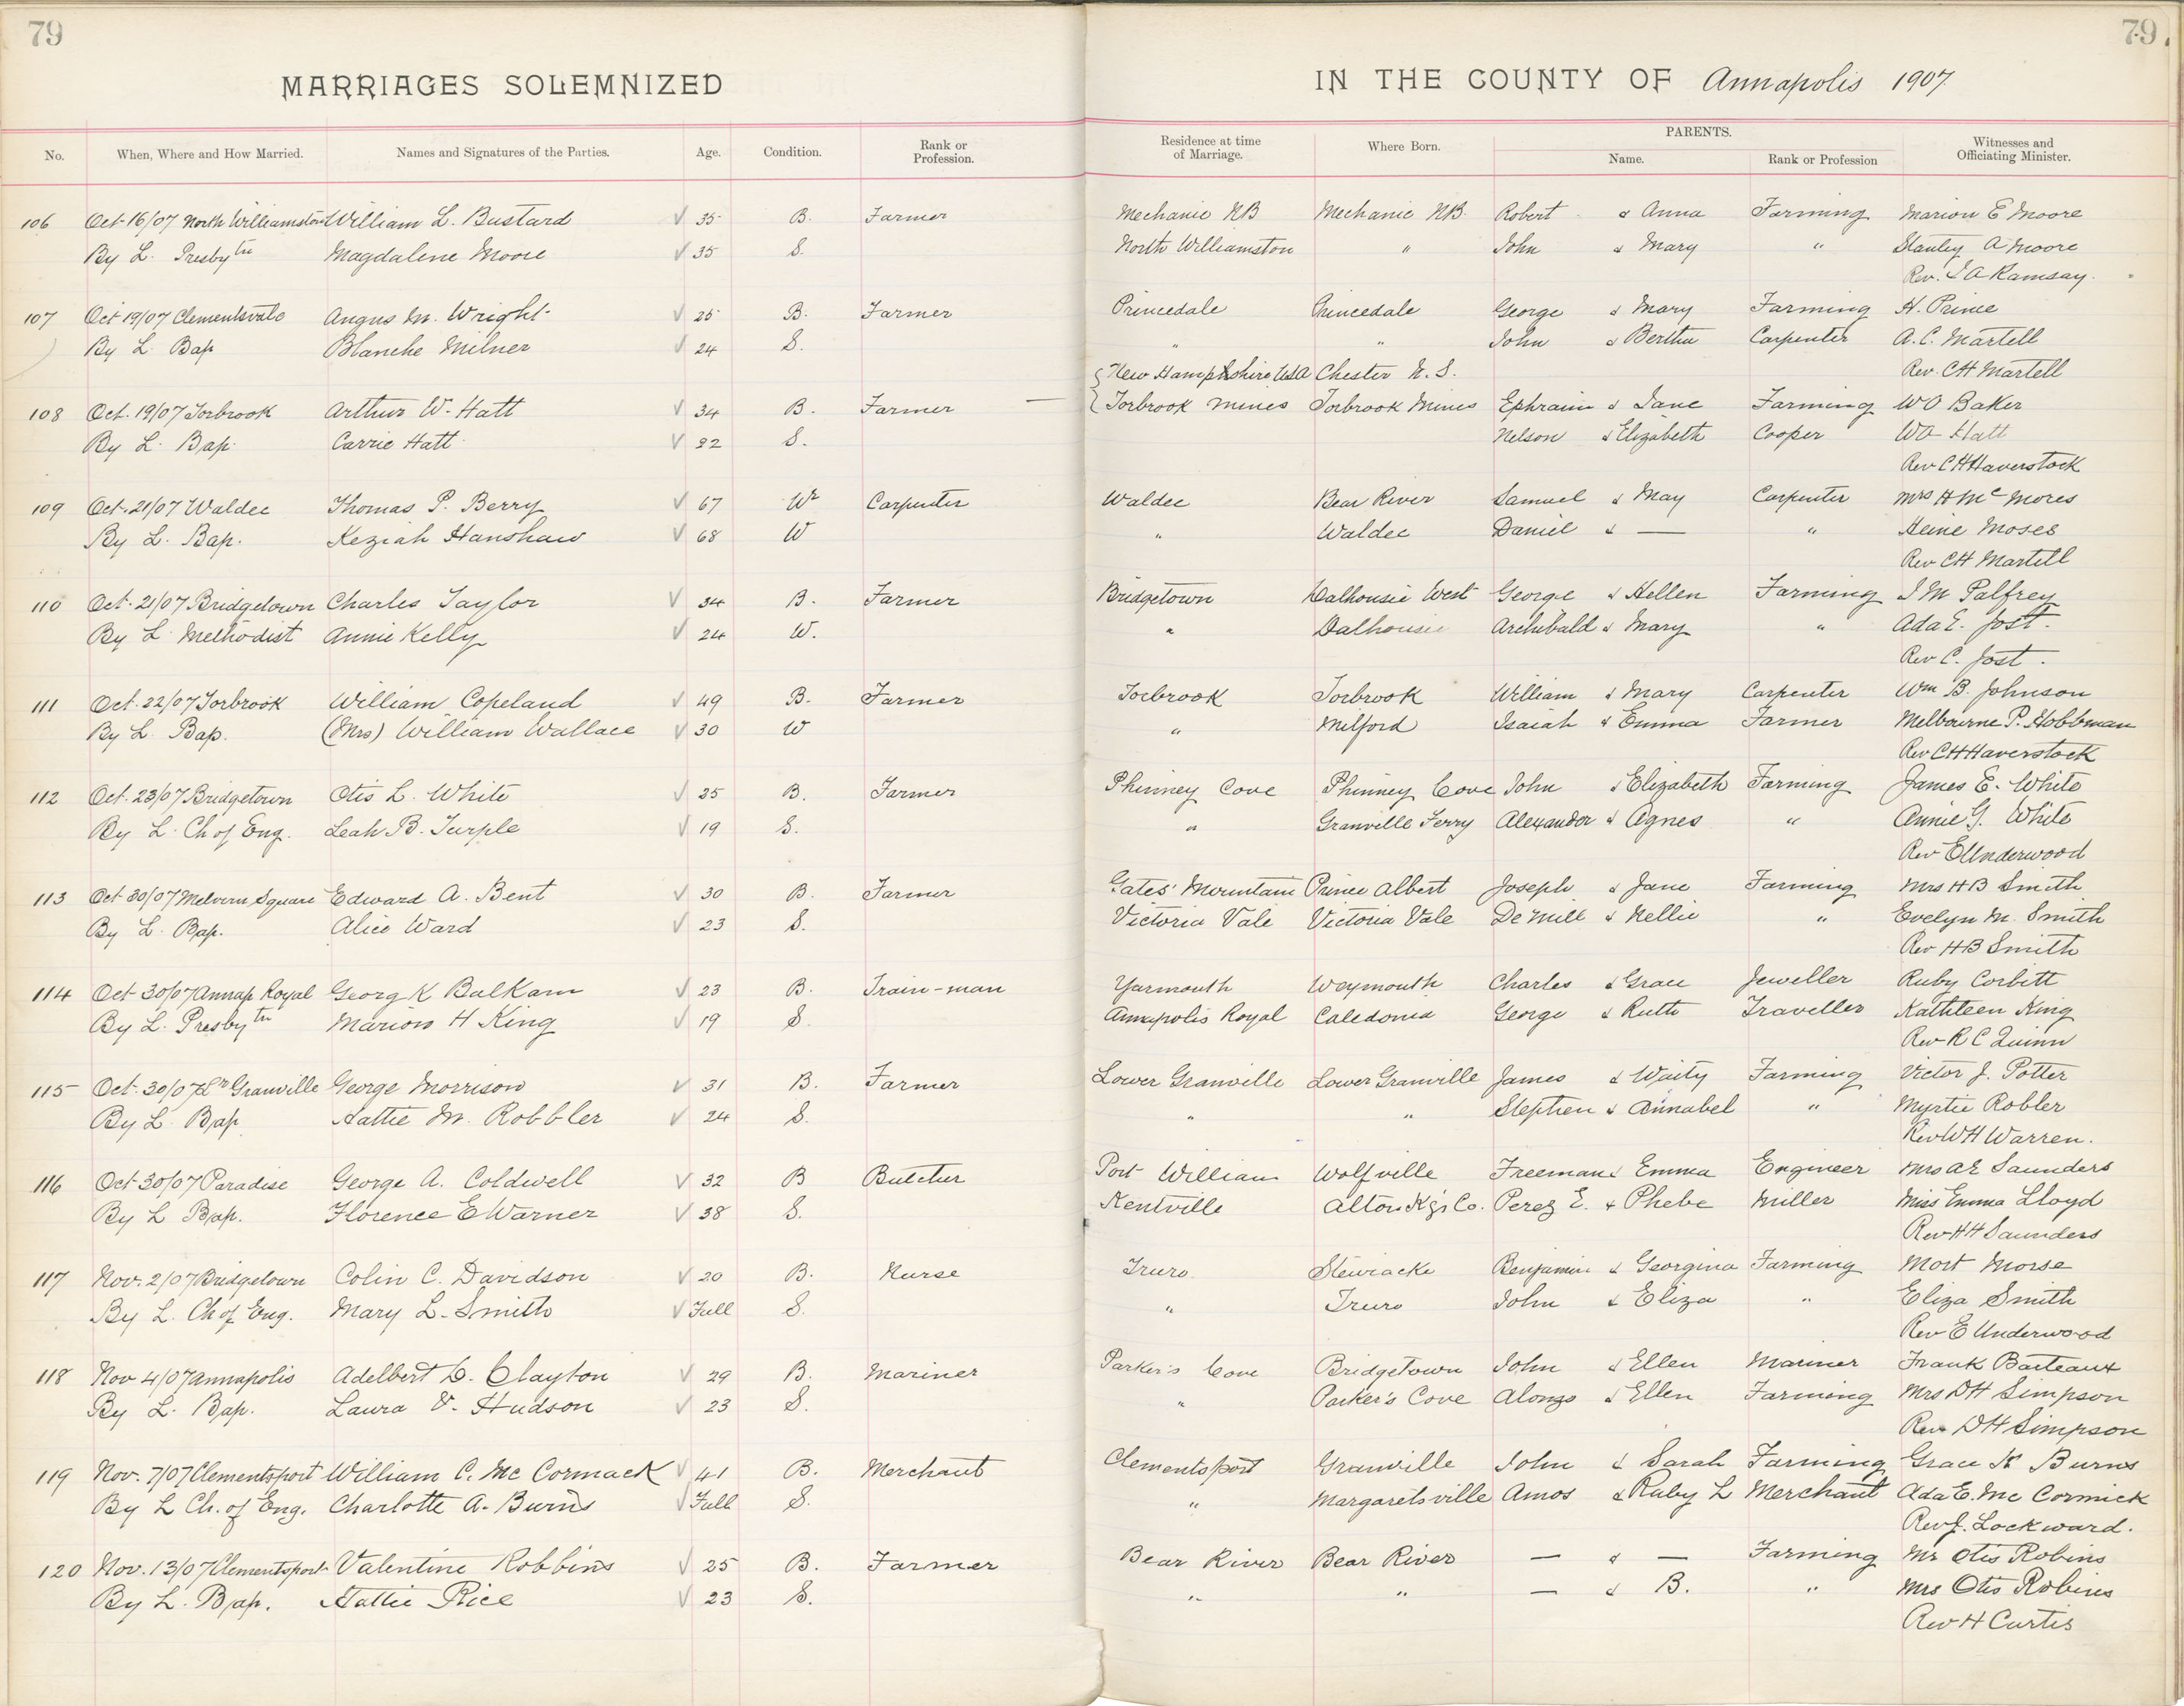 79
79.
MARRIAGES SOLEMNIZED IN THE COUNTY OF Annapolis 1907
PARENTS.
No. When, Where and How Married. Names and Signatures of the Parties. Age. Condition. Rank or Profession. Residence at time of Marriage. Where Born. Name. Rank or Profession Witnesses and Officiating Minister.
106 Oct 16/07 North Williamston William L. Bustard 35 B. Farmer Mechanic NB Mechanic NB. Robert & Anna Farming Marion E Moore
By L. Presbytn Magdalene Moore 35 S. North Williamston " John & Mary " Stanley A Moore
Rev. J A Ramsay.
107 Oct 19/07 Clementsvale Angus M. Wright 25 B. Farmer Princedale Princedale George & Mary Farming H. Prince
By L. Bap Blanche Milner 24 S. " " John & Bertha Carpenter A. C. Martell
{ New Hampshire USA Chester N. S. Rev. CH Martell
108 Oct. 19/07 Torbrook Arthur W. Hatt 34 B. Farmer — Torbrook Mines Torbrook Mines Ephraim & Jane Farming WO Baker
By L. Bap. Carrie Hatt 22 S. Nelson & Elizabeth Cooper WA Hatt
Rev C H Haverstock
109 Oct. 21/07 Waldec Thomas P. Berry 67 Wr Carpenter Waldec Bear River Samuel & May Carpenter Mrs H Mc Mores
By L. Bap. Keziah Hanshaw 68 W " Waldec Daniel & — " Heine Moses
Rev CH Martell
110 Oct. 21/07 Bridgetown Charles Taylor 34 B. Farmer Bridgetown Dalhousie West George & Hellen Farming J M Palfrey
By L. Methodist Annie Kelly 24 W. " Dalhousie Archibald & Mary " Ada E. Jost.
Rev C. Jost.
111 Oct. 22/07 Torbrook William Copeland 49 B. Farmer Torbrook Torbrook William & Mary Carpenter Wm B. Johnson
By L. Bap. (Mrs) William Wallace 30 W " Milford Isaiah & Emma Farmer Melbourne P. Hobbman
Rev C H Haverstock
112 Oct. 23/07 Bridgetown Otis L. White 25 B. Farmer Phinney Cove Phinney Cove John & Elizabeth Farming James E. White
By L. Ch of Eng. Leah B. Turple 19 S. " Granville Ferry Alexander & Agnes " Annie G. White
Rev E Underwood
113 Oct 30/07 Melvern Square Edward A. Bent 30 B. Farmer Gates' Mountain Prince Albert Joseph & Jane Farming Mrs H B Smith
By L. Bap. Alice Ward 23 S. Victoria Vale Victoria Vale De Mill & Nellie " Evelyn M. Smith
Rev H B Smith
114 Oct 30/07 Annap Royal Georg K Balkam 23 B. Train-man Yarmouth Weymouth Charles & Grace Jeweller Ruby Corbitt
By L. Presbytn Marion H King 19 S. Annapolis Royal Caledonia George & Ruth Traveller Kathleen King
Rev R C Quinn
115 Oct. 30/07 Lr Granville George Morrison 31 B. Farmer Lower Granville Lower Granville James & Waity Farming Victor J. Potter
By L. Bap Hattie M. Robbler 24 S. " " Stephen & Annabel " Myrtie Robler
Rev W H Warren.
116 Oct 30/07 Paradise George A. Coldwell 32 B Butcher Port William Wolfville Freeman & Emma Engineer Mrs A E Saunders
By L Bap. Florence E Warner 38 S. Kentville Alton Kg's Co. Perez E. & Phebe Miller Miss Emma Lloyd
Rev H H Saunders
117 Nov. 2/07 Bridgetown Colin C. Davidson 20 B. Nurse Truro Stewiacke Benjamin & Georgina Farming Mort Morse
By L. Ch of Eng. Mary L. Smith Full S. " Truro John & Eliza " Eliza Smith
Rev E Underwood
118 Nov 4/07 Annapolis Adelbert D. Clayton 29 B. Mariner Parker's Cove Bridgetown John & Ellen Mariner Frank Barteaux
By L. Bap. Laura V. Hudson 23 S. " Parker's Cove Alonzo & Ellen Farming Mrs D H Simpson
Rev D H Simpson
119 Nov. 7/07 Clementsport William C. Mc Cormack 41 B. Merchant Clementsport Granville John & Sarah Farming Grace K Burns
By L Ch. of Eng. Charlotte A. Burns Full S. " Margaretsville Amos & Ruby L Merchant Ada E. Mc Cormick
Rev J. Lockward.
120 Nov. 13/07 Clementsport Valentine Robbins 25 B. Farmer Bear River Bear River — & — Farming Mr Otis Robins
By L. Bap. Hattie Rice 23 S. " " — & B. " Mrs Otis Robins
Rev H Curtis